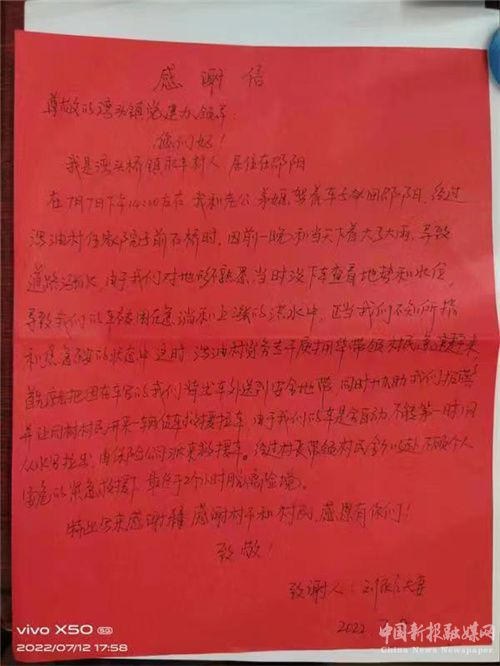 感谢信
尊敬的湾头镇党建办领导:
您们好!
我是湾头桥镇 村人 居住在邵阳
在7月7日下午14:00左右 我和老公、弟媳驾着车子从田邵阳、经过
油村 院子前石桥时,因前一晚和当天下着大了大雨,导致
道路积水,由于我们对地形不熟悉,当时没下车查看地势和水位
导致我们的车被困在急湍和上涨的洪水中。正当我们不知所措
和焦急不安的状态中 这时 油村党务主干 带领村民 赶来
首先把困在车里的我们背出车外送到安全地带 同时协助我们
并让同村村民开来一辆 车 救援车,由于我们的车是全自动 不能第一时间
从水里拉出,由保险公司派来救援车。经过村长带领村民 不顾个人
安危的紧急救援下,最终于2个小时脱离险境。
特此写来感谢 感谢村干和村民,感恩有你们!
致敬!
致谢人: 夫妻
2022
vivo X50 5G
2022/07/12 17:58
中国新报融媒网
China News Newspaper